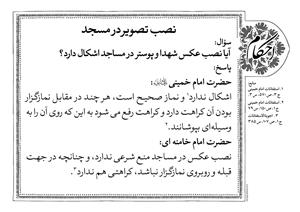 نصب تصویر در مسجد
سؤال:
آیا نصب عکس شهدا و پوستر در مساجد اشکال دارد؟
پاسخ:
حضرت امام خمینی
اشکال ندارد۱ و نماز صحیح است، هر چند در مقابل نمازگزار
بودن آن کراهت دارد و کراهت رفع می شود به این که روی آن را به
وسیله‌ای بپوشانند.۲
حضرت امام خامنه ای:
نصب عکس در مساجد منع شرعی ندارد، و چنانچه در جهت
قبله و روبروی نمازگزار نباشد، کراهتی هم ندارد.۳
احکام
منابع:
۱. استفتائات امام خمینی
۲. استفتائات امام خمینی